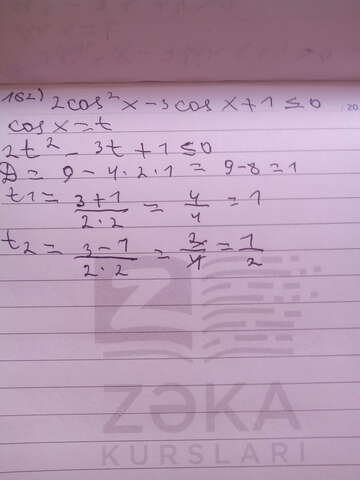 162) 2cos²x-3cosx+1≤0
cosx=t
2t² - 3t+1≤0
D = 9-4·2·1 = 9-8=1
t1 = (3+1)/(2·2) = 4/4 = 1
t2 = (3-1)/(2·2) = 2/4 = 1/2
ZƏKA
KURSLARI